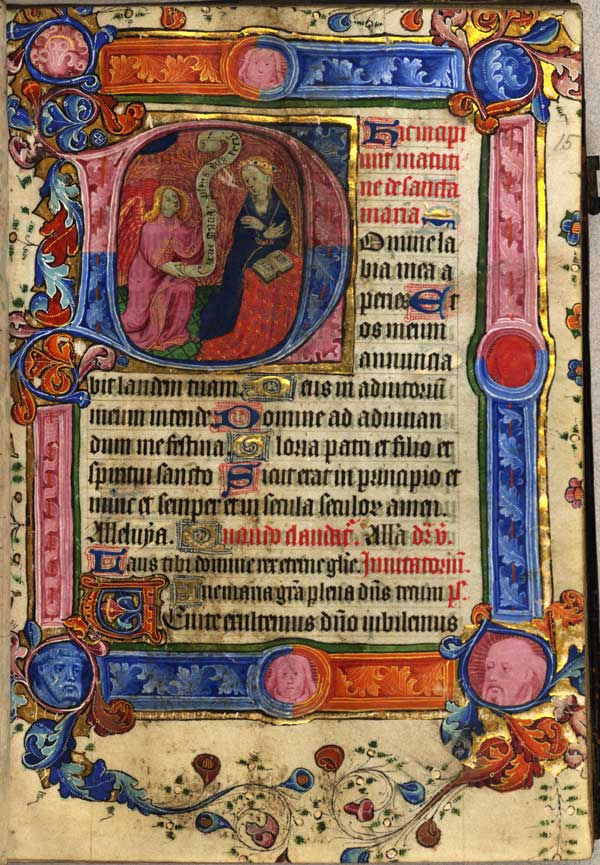 Hic incipi
unt matuti
ne de sancta
maria
15
Ave maria gratia plena dns tecu
Domine la
bia mea a
peries Et
os meum
annuncia
bit laudem tuam Deus in adiutoriū
meum intende Domine ad adiuvan
dum me festina Gloria patri et filio et
spiritui sancto Sicut erat in principio et
nunc et semper et in secula seculor amen.
Alleluya. Quando claudit᷑. Alla dr̄ v.
Laus tibi domine rex eterne glie. Invitatoriū.
Ave maria gr̄a plena dn̄s tecum ps.
Venite exultemus dn̄o iubilemus